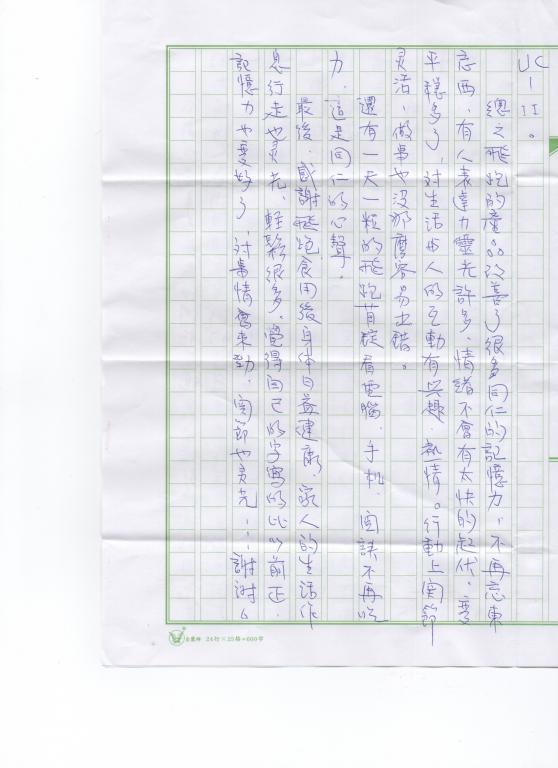 UC-II。
總之飛跑的產品改善了很多同仁的記憶力,不再忘東
忘西,有人表達力靈光許多,情緒不會有太快的起伏,變
平穩多了,對生活与人的互動有兴趣,热情。行動上関節
灵活,做事也沒那麼容易出錯。
還有一天一粒的飛跑 看電腦、手机、閱読不再吃
力,這是同仁的心聲。
最後,感謝飛跑食用後身体日益健康,家人的生活作
息行走也灵光,輕鬆很多。覺得自己的字寫的比以前正,
記憶力也變好了,对事情 來勁,関節也灵光……謝謝
24行×25格=600字